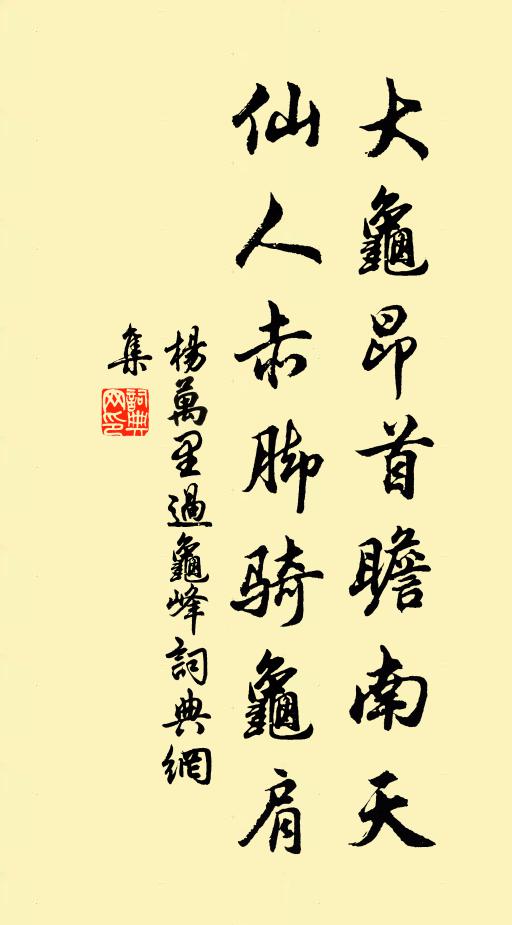 大龜昂首瞻南天
仙人赤脚骑龜肩
楊萬里過龜峰詞典網
集
詞典
网印